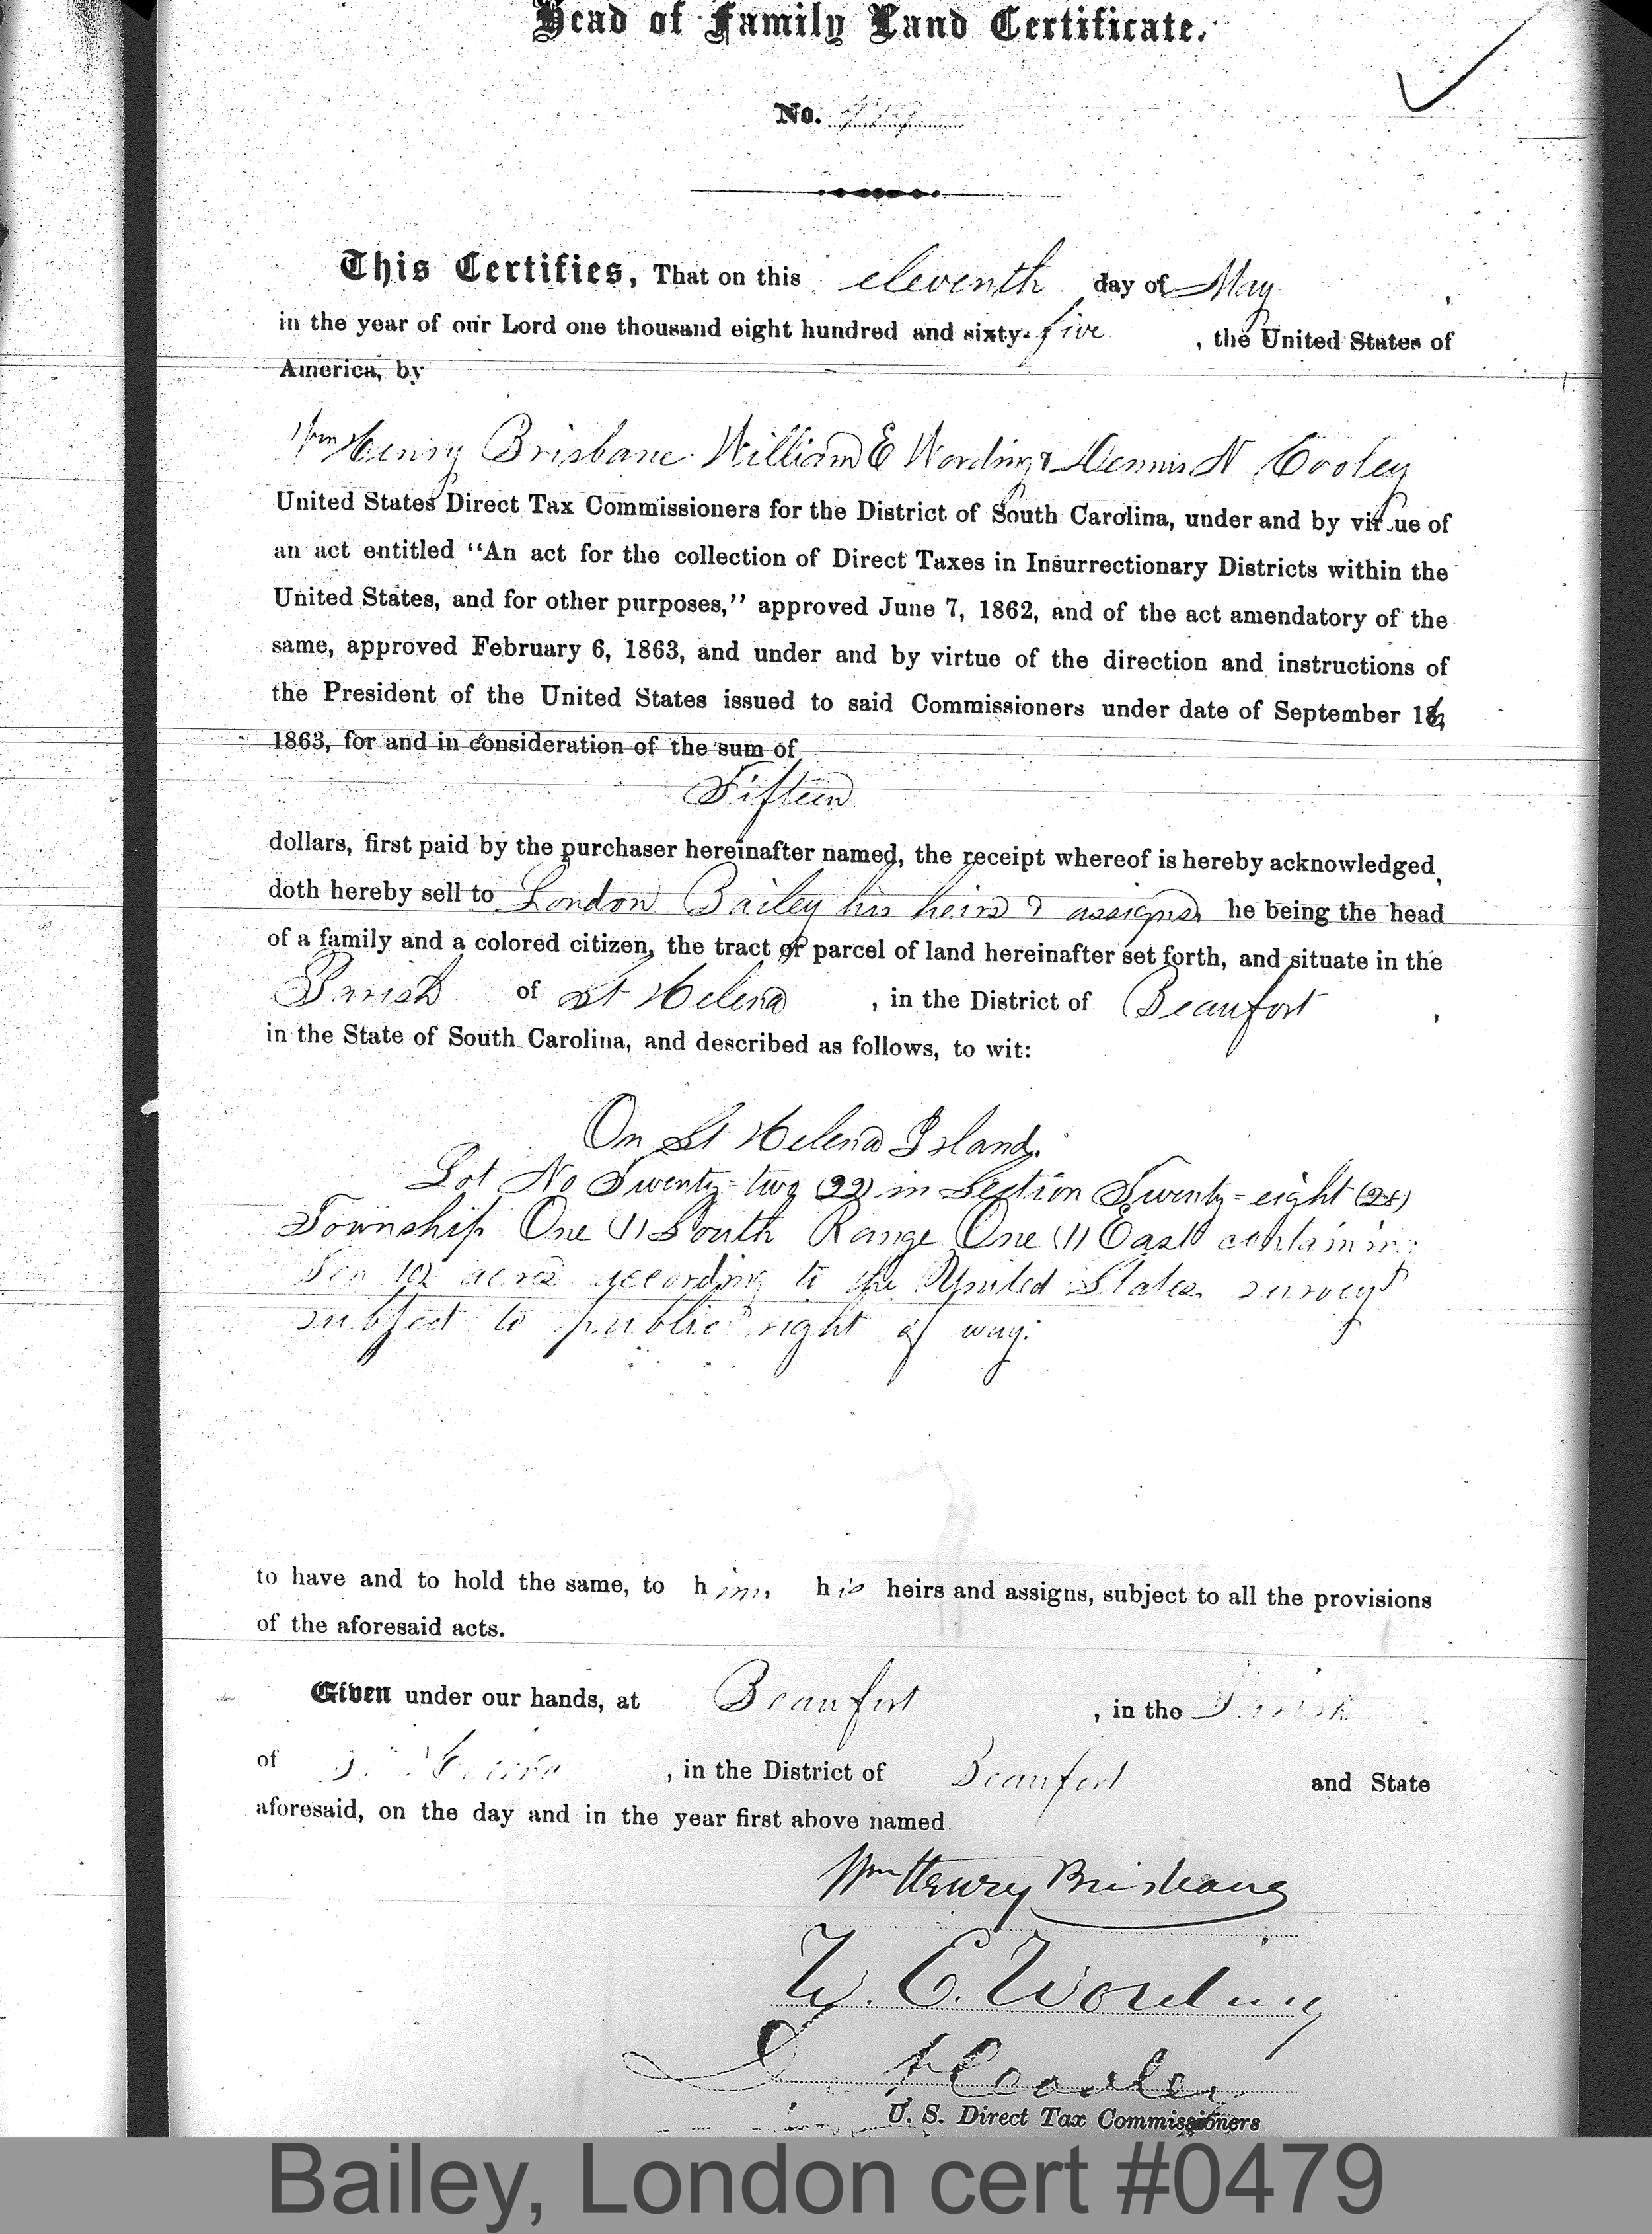 Head of Family Land Certificate.
No.
This Certifies, That on this eleventh day of May,
in the year of our Lord one thousand eight hundred and sixty-five, the United States of
America, by
Wm Henry Brisbane William E Wording & Dennis N Cooley
United States Direct Tax Commissioners for the District of South Carolina, under and by virtue of
an act entitled “An act for the collection of Direct Taxes in Insurrectionary Districts within the
United States, and for other purposes,” approved June 7, 1862, and of the act amendatory of the
same, approved February 6, 1863, and under and by virtue of the direction and instructions of
the President of the United States issued to said Commissioners under date of September
1863, for and in consideration of the sum of
Fifteen
dollars, first paid by the purchaser hereinafter named, the receipt whereof is hereby acknowledged,
doth hereby sell to London Bailey his heirs & assigns, he being the head
of a family and a colored citizen, the tract or parcel of land hereinafter set forth, and situate in the
Parish of St Helena, in the District of Beaufort,
in the State of South Carolina, and described as follows, to wit:
On St Helena Island.
Lot No Twenty-two (22) in Section Twenty-eight (28)
Township One (1) South Range One (1) East containing
Ten (10) acres according to the United States survey
subject to public right of way.
to have and to hold the same, to him, his heirs and assigns, subject to all the provisions
of the aforesaid acts.
Given under our hands, at Beaufort, in the Parish
of St Helena, in the District of Beaufort and State
aforesaid, on the day and in the year first above named.
Wm Henry Brisbane
W. E. Wording
D N Cooley
U. S. Direct Tax Commissioners
Bailey, London cert #0479